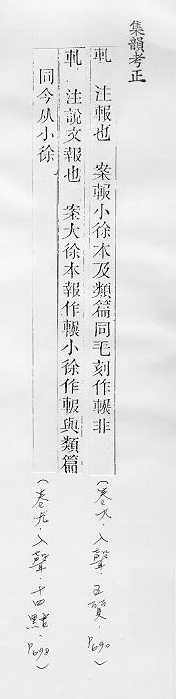 集韻考正
軋 注報也 案報小徐本及類篇同毛刻作輾非 (卷九·入聲·五質·P690)
軋 注說文報也 案大徐本報作輾小徐作報與類篇 (卷九·入聲·十四黠·P698)
同今从小徐